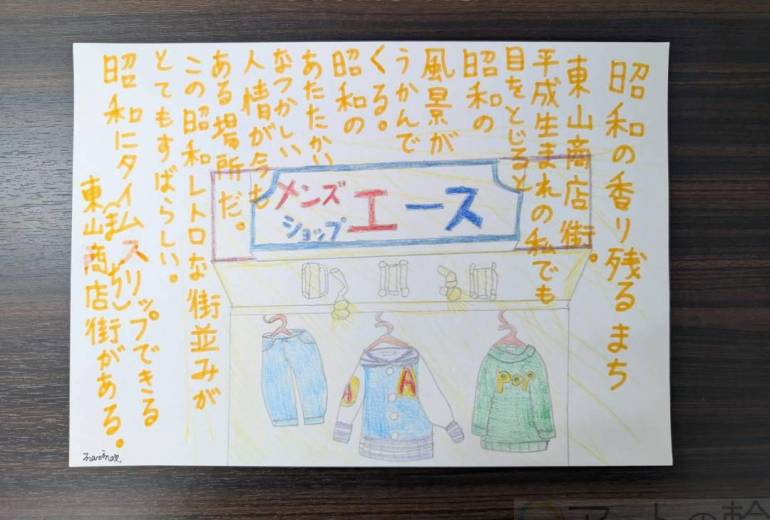 昭和の香り残るまち
東山商店街。
平成生まれの私でも
目をとじると
昭和の
風景が
うかんで
くる。
昭和の
あたたかい
なつかしい
人情が今も
ある場所だ。
この昭和レトロな街並みが
とてもすばらしい。
昭和にタイムスリップできる
東山商店街がある。
メンズ
ショップ
エース
A
A
POP